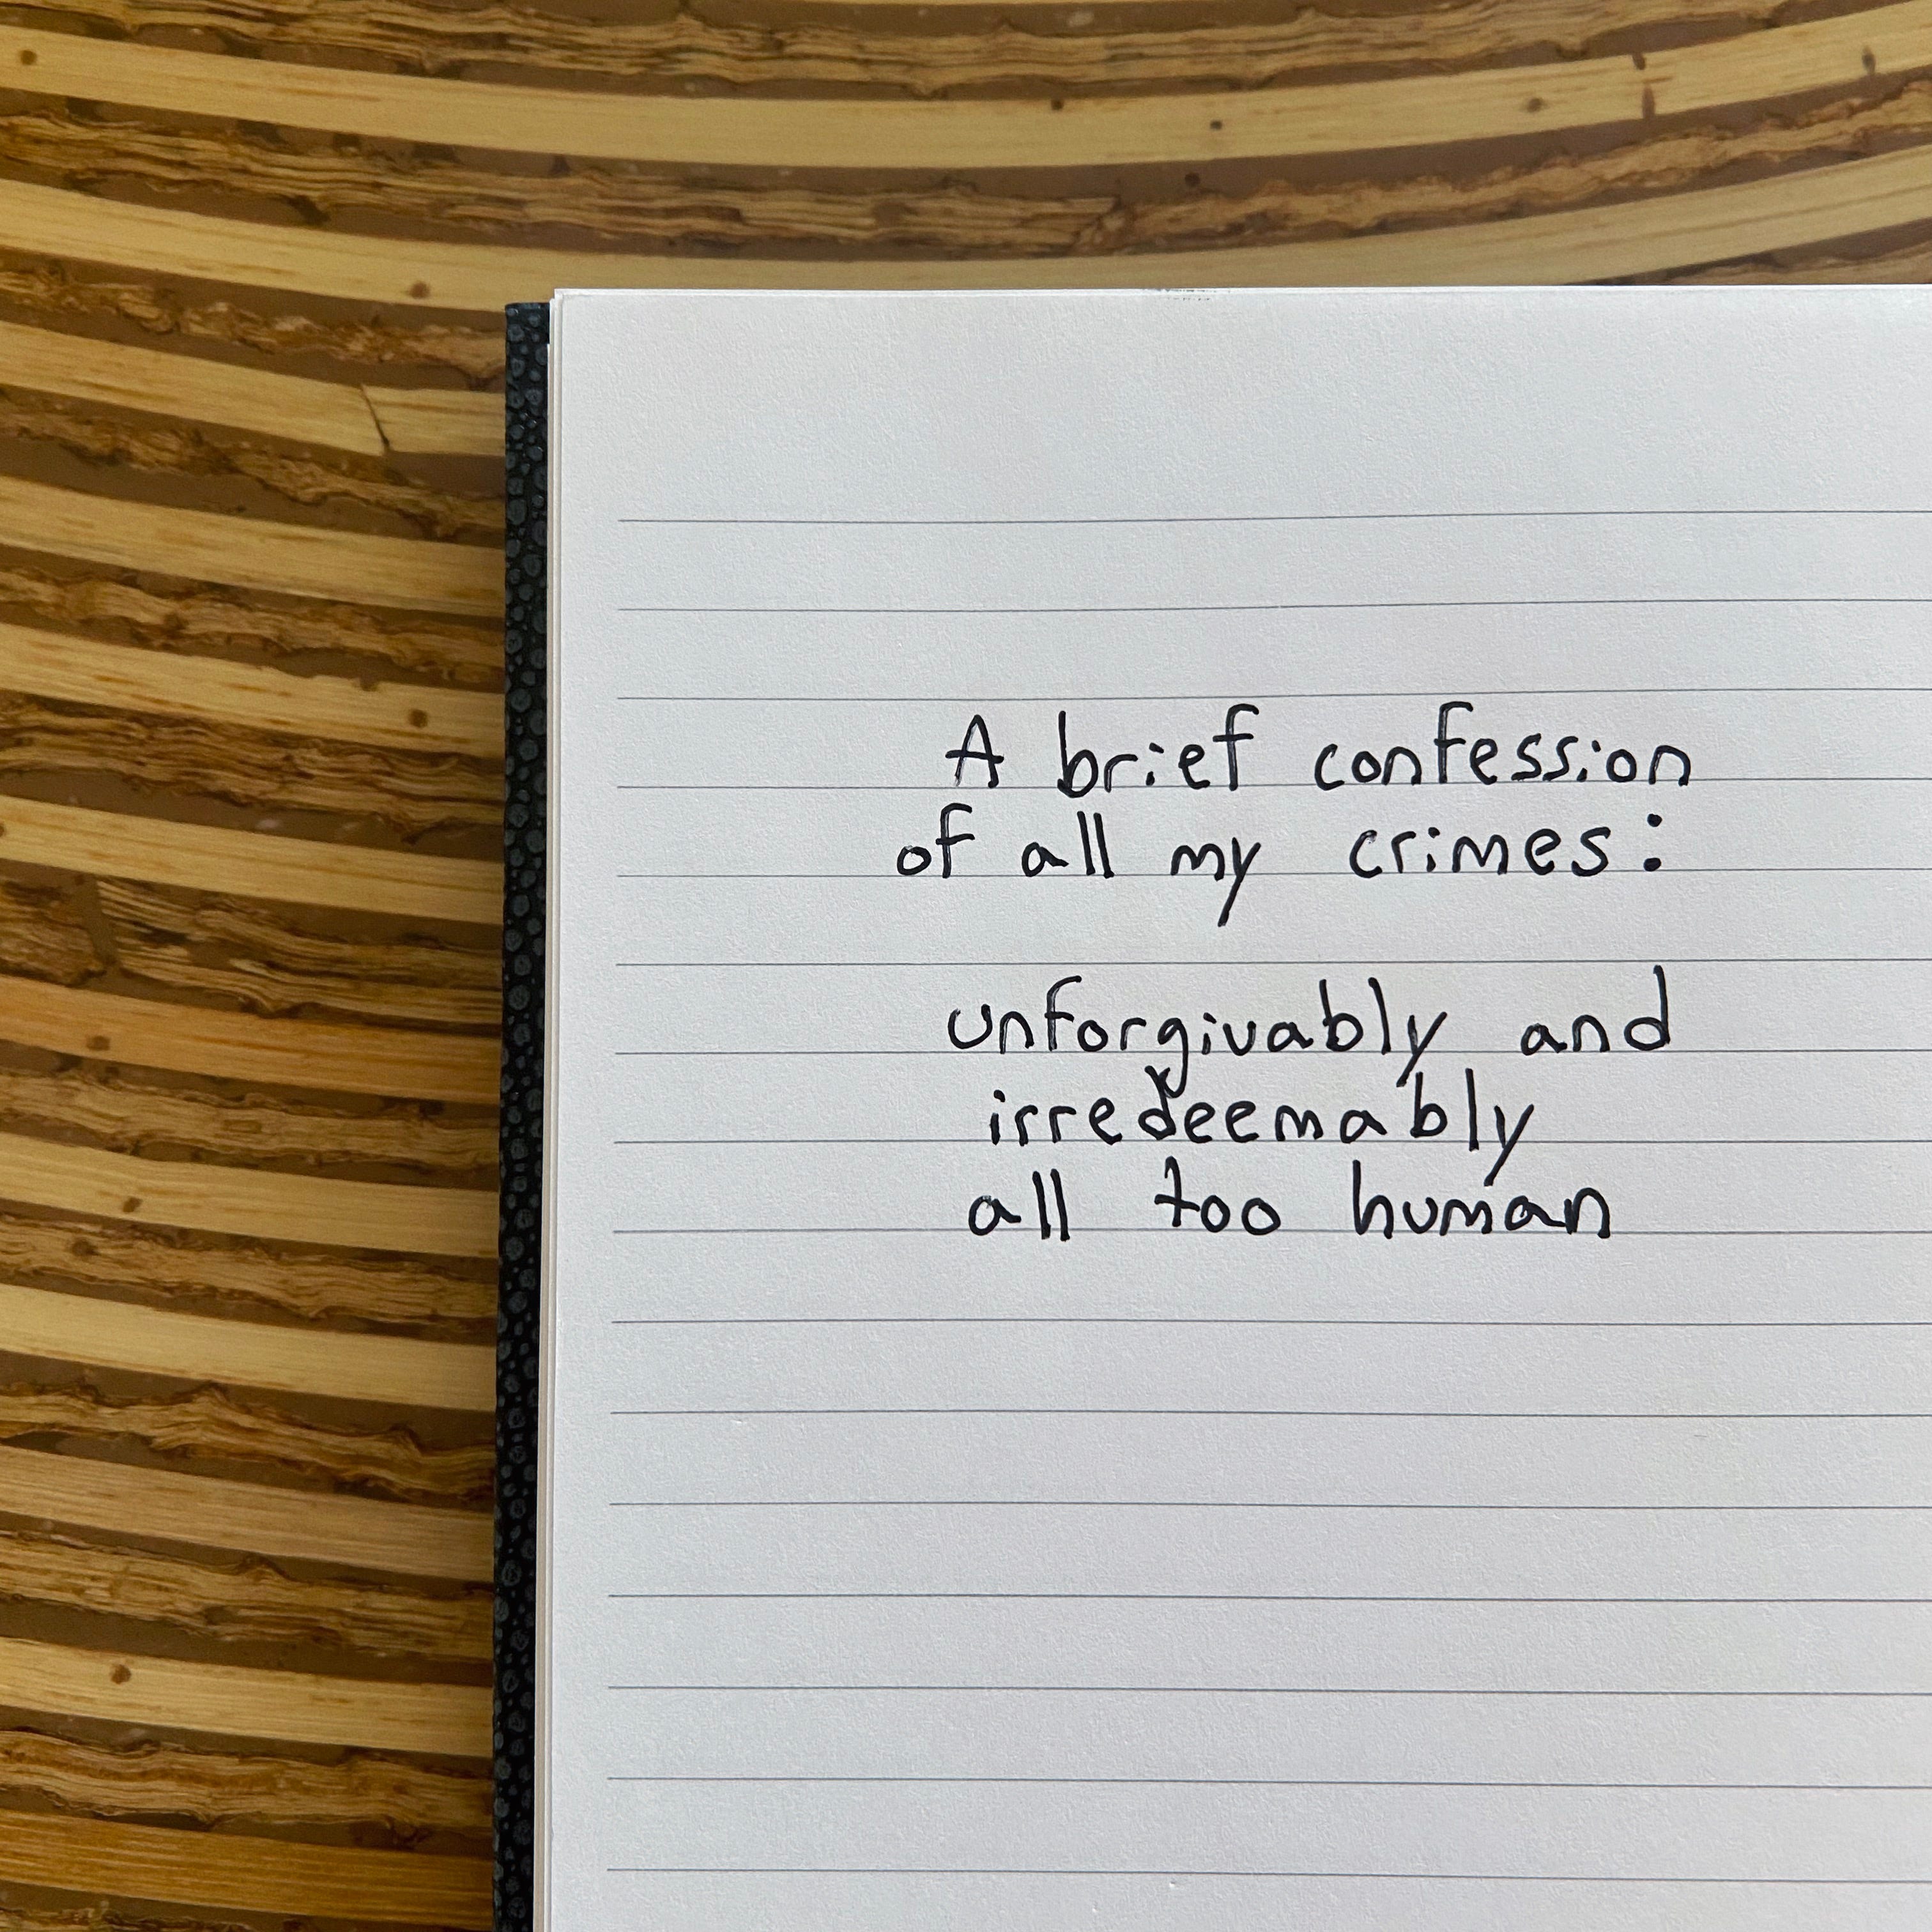 A brief confession
of all my crimes:
unforgivably and
irredeemably
all too human